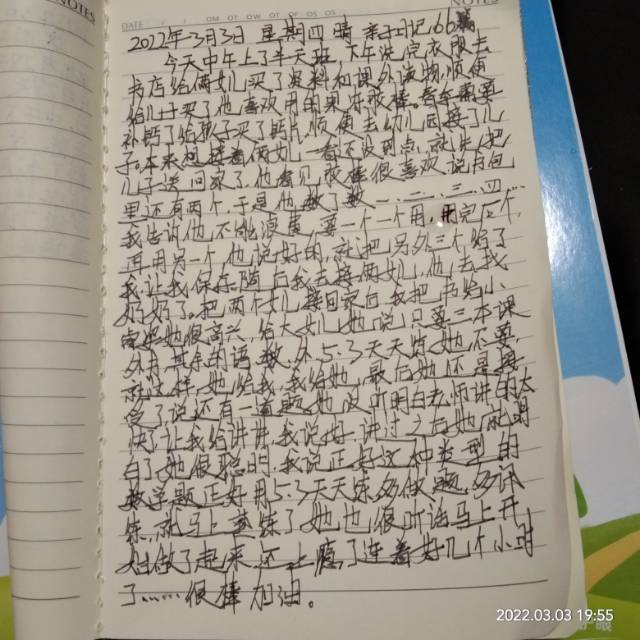 NOTES
DATE
2022年3月3日 星期四 晴 亲子日记66篇
今天中午上了半天班 下午洗完衣服去
书店给俩女儿买了资料和课外读物,顺便
给儿子买了他喜欢用的
补钙了给
子 本来 接着俩女儿一看不没到点,就先把
儿子送回家了,他看见 很喜欢,说有
里还有两个,于是他数了数 一.二.三.四
我告诉他不能浪费,要一个一个用,用完一个,
再用另一个他说好的,就把另外三个给了
我让我保存随后我去接俩女儿,他去找
奶奶了。把两个女儿接回家后我把书给小
她很高兴,给大女儿她说只要三本课
外 其余的语数 5.3天天练她不要
就这样,她给我我给她,最后她还是接
受了说还有一道题她没听明白老师讲的太
快了让我给讲讲,我说好,讲过之后她就明
白了她很聪明,我说正好这种类型的
数学题正好用5.3天天练多做题,多训
练,就马上 练了她也很听话马上开
始做了起来还上瘾了连着好几个小时
了……很棒 加油。
2022.03.03 19:55